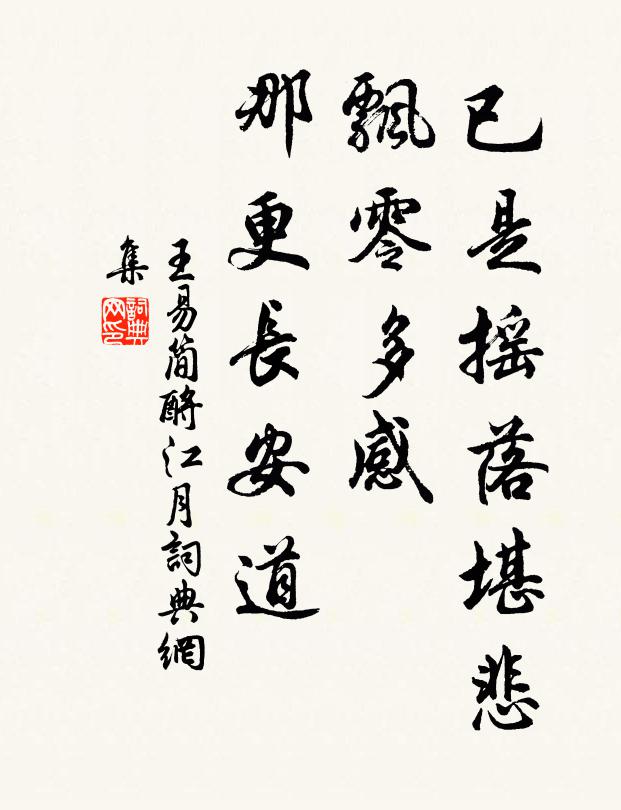 已是摇落堪悲
飄零多感
那更長安道
王易简酹江月詞典網
集
詞典网印